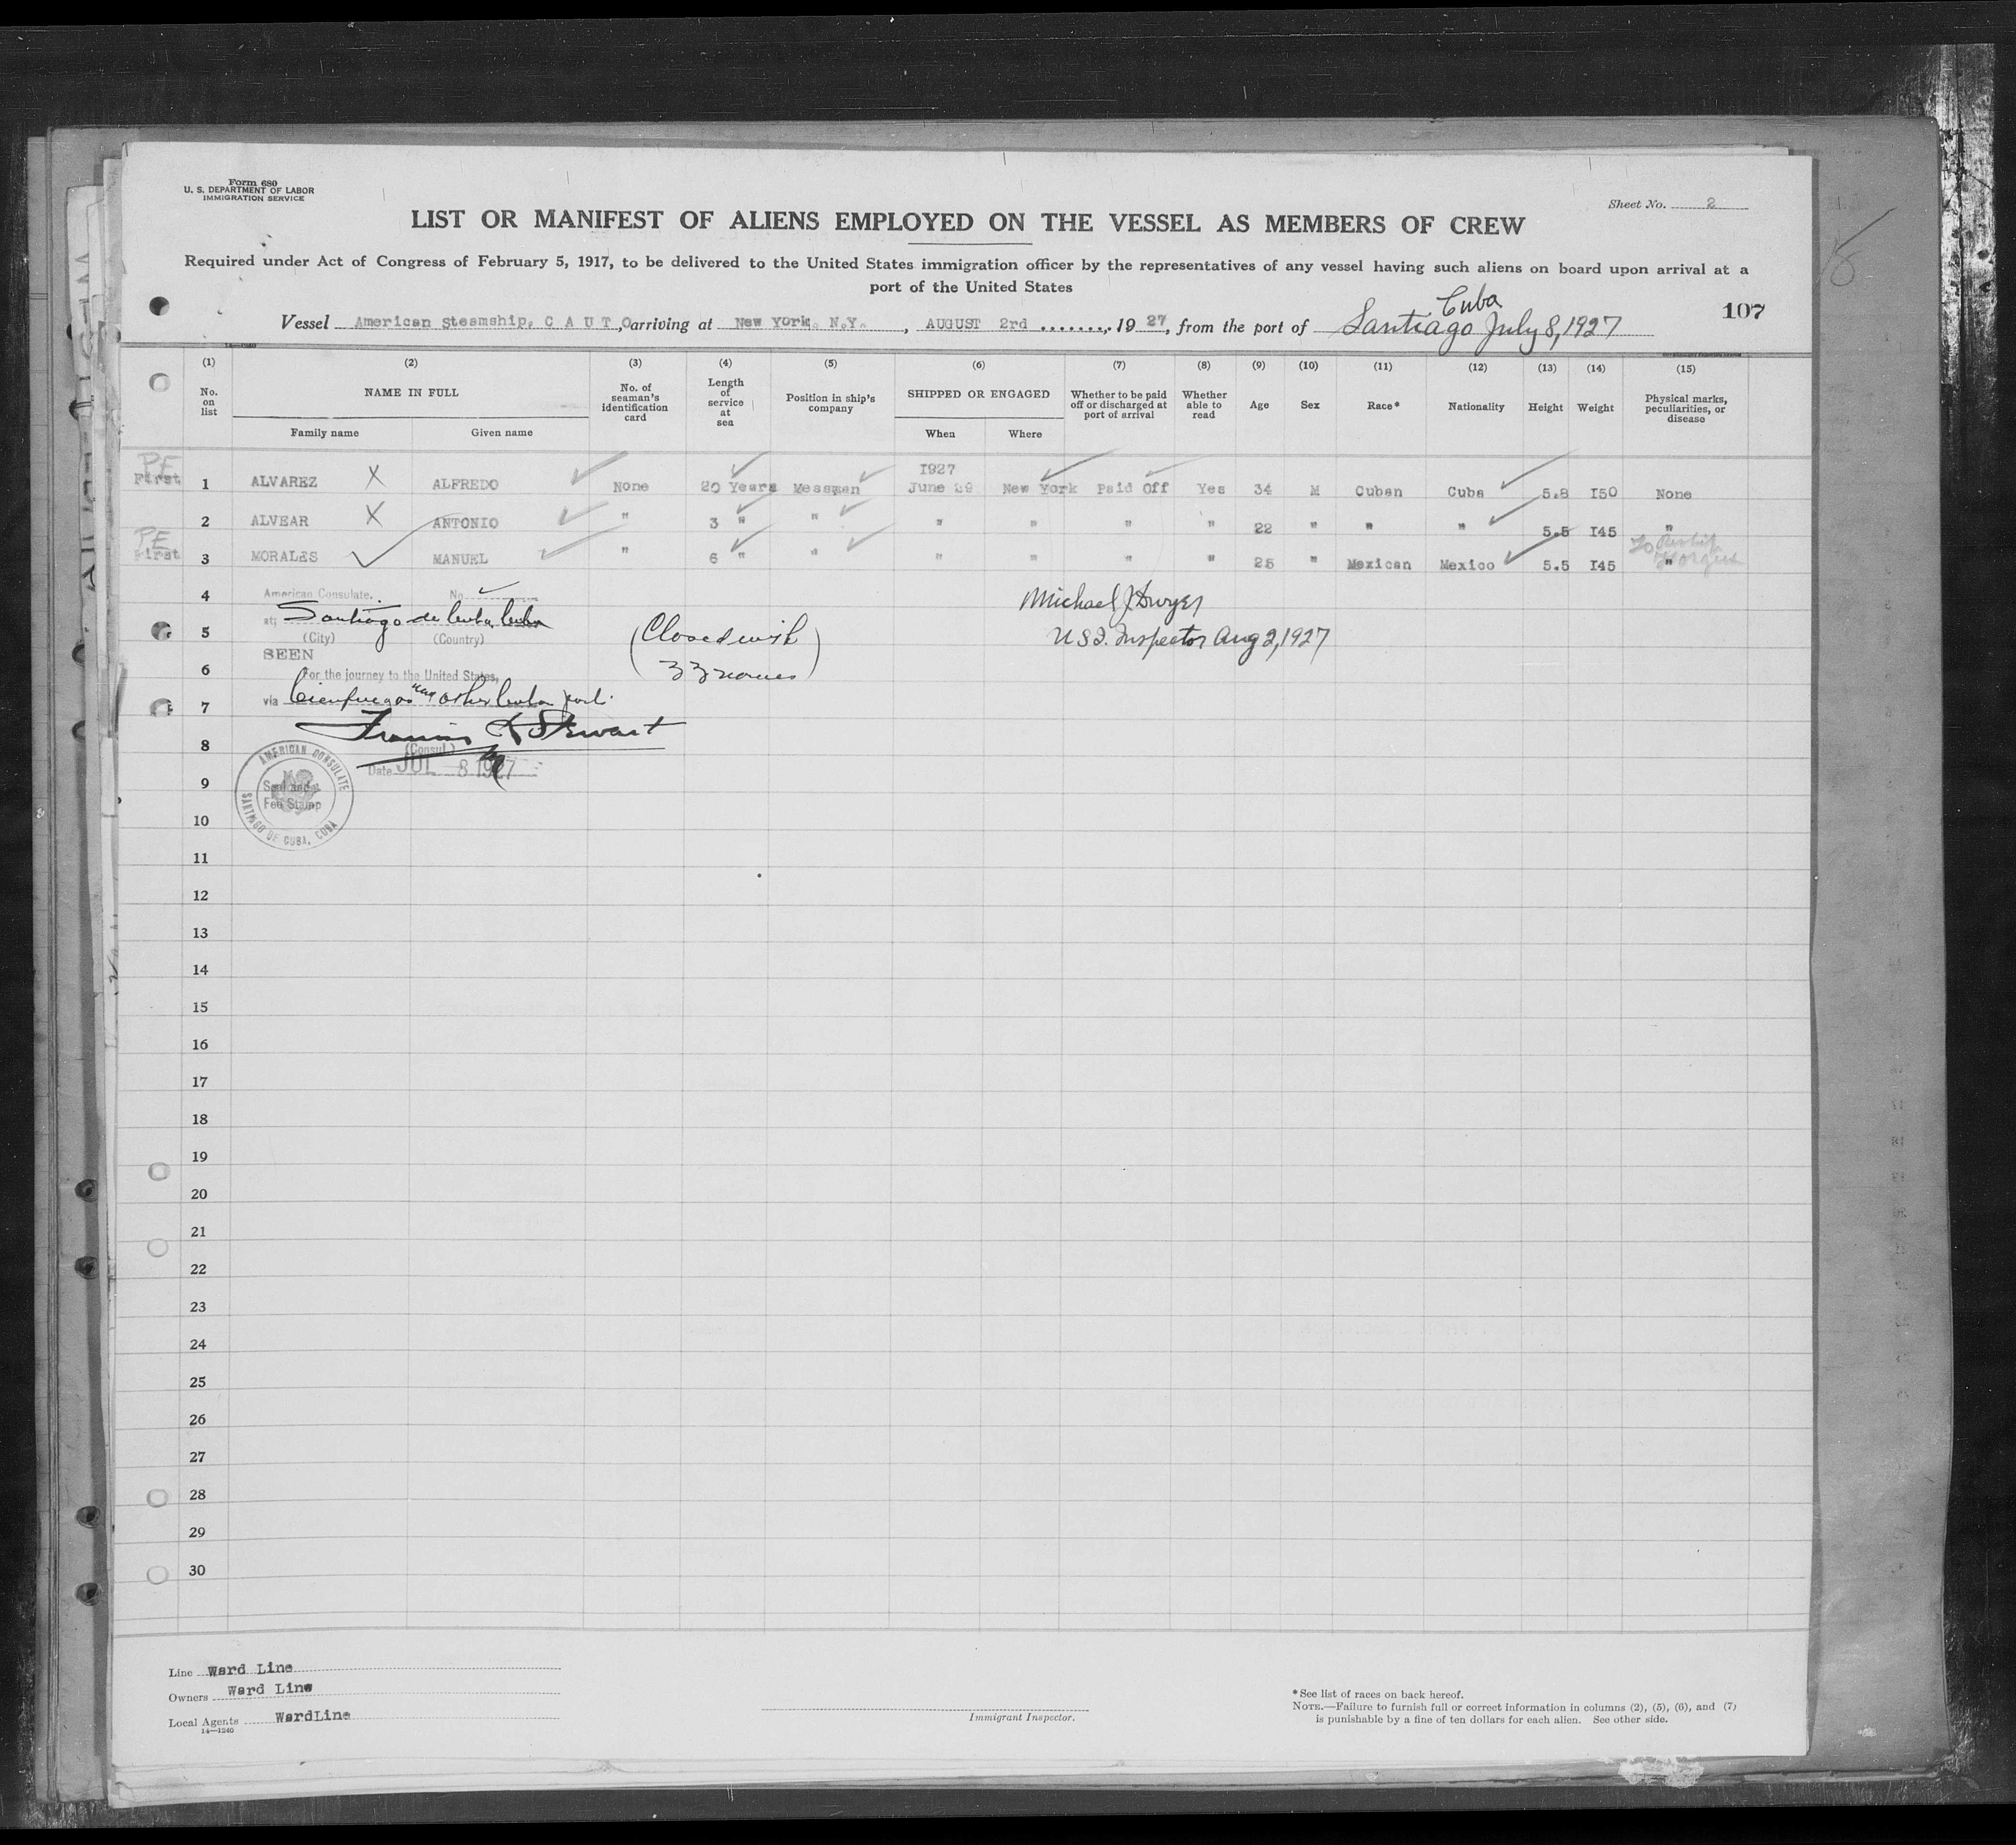 Form 680
U. S. DEPARTMENT OF LABOR
IMMIGRATION SERVICE
Sheet No. 2
LIST OR MANIFEST OF ALIENS EMPLOYED ON THE VESSEL AS MEMBERS OF CREW
Required under Act of Congress of February 5, 1917, to be delivered to the United States immigration officer by the representatives of any vessel having such aliens on board upon arrival at a
port of the United States
107
Cuba
Vessel American Steamship, C A U T O, arriving at New York. N.Y. , AUGUST 2rd ......., 19 27, from the port of Santiago July 8, 1927
(1) (2) (3) (4) (5) (6) (7) (8) (9) (10) (11) (12) (13) (14) (15)
No. on list NAME IN FULL No. of seaman's identification card Length of service at sea Position in ship's company SHIPPED OR ENGAGED Whether to be paid off or discharged at port of arrival Whether able to read Age Sex Race* Nationality Height Weight Physical marks, peculiarities, or disease
Family name Given name When Where
1927
PE First 1 ALVAREZ X ALFREDO None 20 Years Messman June 29 New York Paid Off Yes 34 M Cuban Cuba 5.8 150 None
2 ALVEAR X ANTONIO " 3 " " " " " " 22 " " " 5.5 145 "
PE First 3 MORALES MANUEL " 6 " " " " " " 25 " Mexican Mexico 5.5 145 "
4 American Consulate. No.
Michael J Dwyer
at; Santiago de Cuba, Cuba
5 (City) (Country)
(Closed with
33 names)
U S I. Inspector Aug 2, 1927
SEEN
6 For the journey to the United States,
7 via Cienfuegos and other Cuban port.
Francis R Stewart
8 (Consul)
Date JUL 8 1927
AMERICAN CONSULATE
SANTIAGO DE CUBA, CUBA
Seal and
Fee Stamp
9
10
11
12
13
14
15
16
17
18
19
20
21
22
23
24
25
26
27
28
29
30
Line Ward Line
Owners Ward Line
Local Agents WardLine
14—1240
Immigrant Inspector.
*See list of races on back hereof.
NOTE.—Failure to furnish full or correct information in columns (2), (5), (6), and (7)
is punishable by a fine of ten dollars for each alien. See other side.